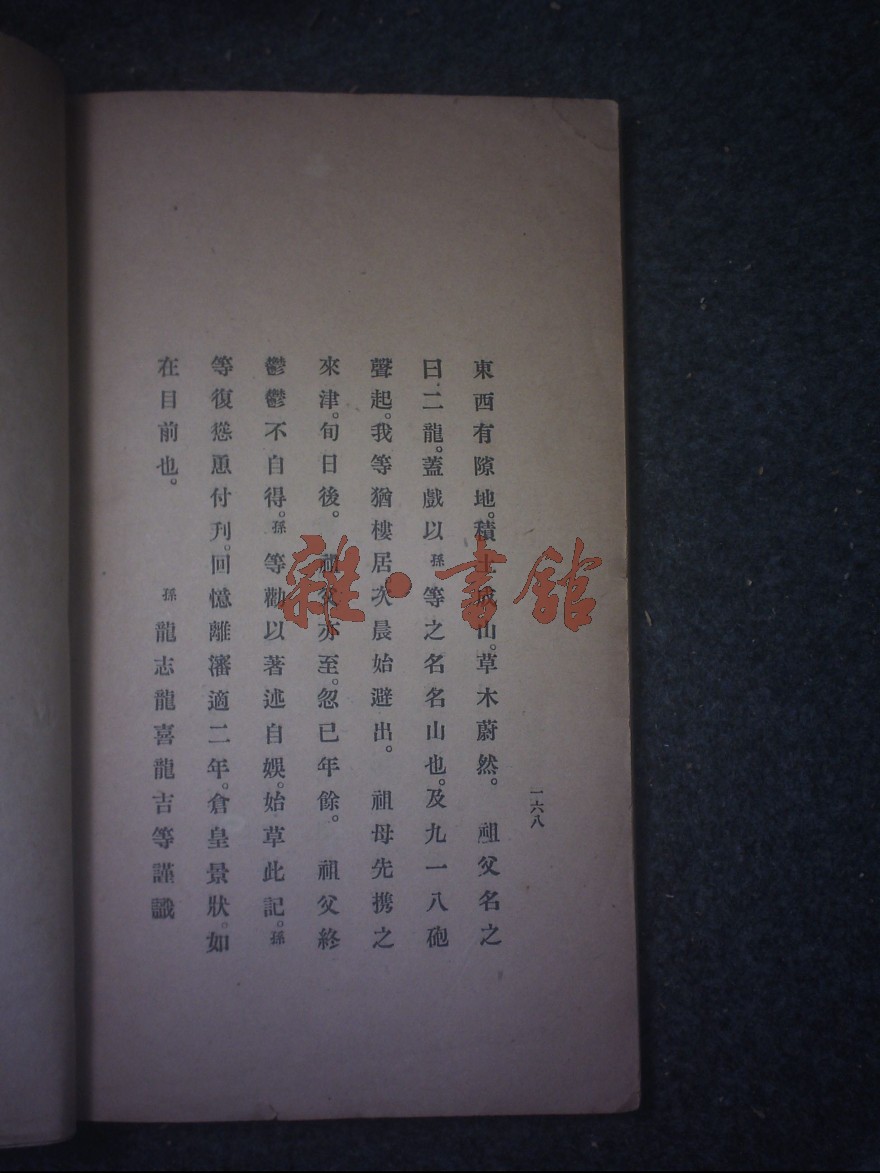 東西有隙地。積土成山。草木蔚然。 祖父名之
曰二龍。蓋戲以孫等之名名山也。及九一八砲
聲起。我等猶樓居次晨始避出。 祖母先携之
來津。旬日後。 祖父亦至。忽已年餘。 祖父終
鬱鬱不自得。孫等勸以著述自娛。始草此記。孫
等復慫恿付刊。回憶離瀋適二年。倉皇景狀。如
在目前也。 孫龍志龍喜龍吉等謹識
一六八
雜·書館